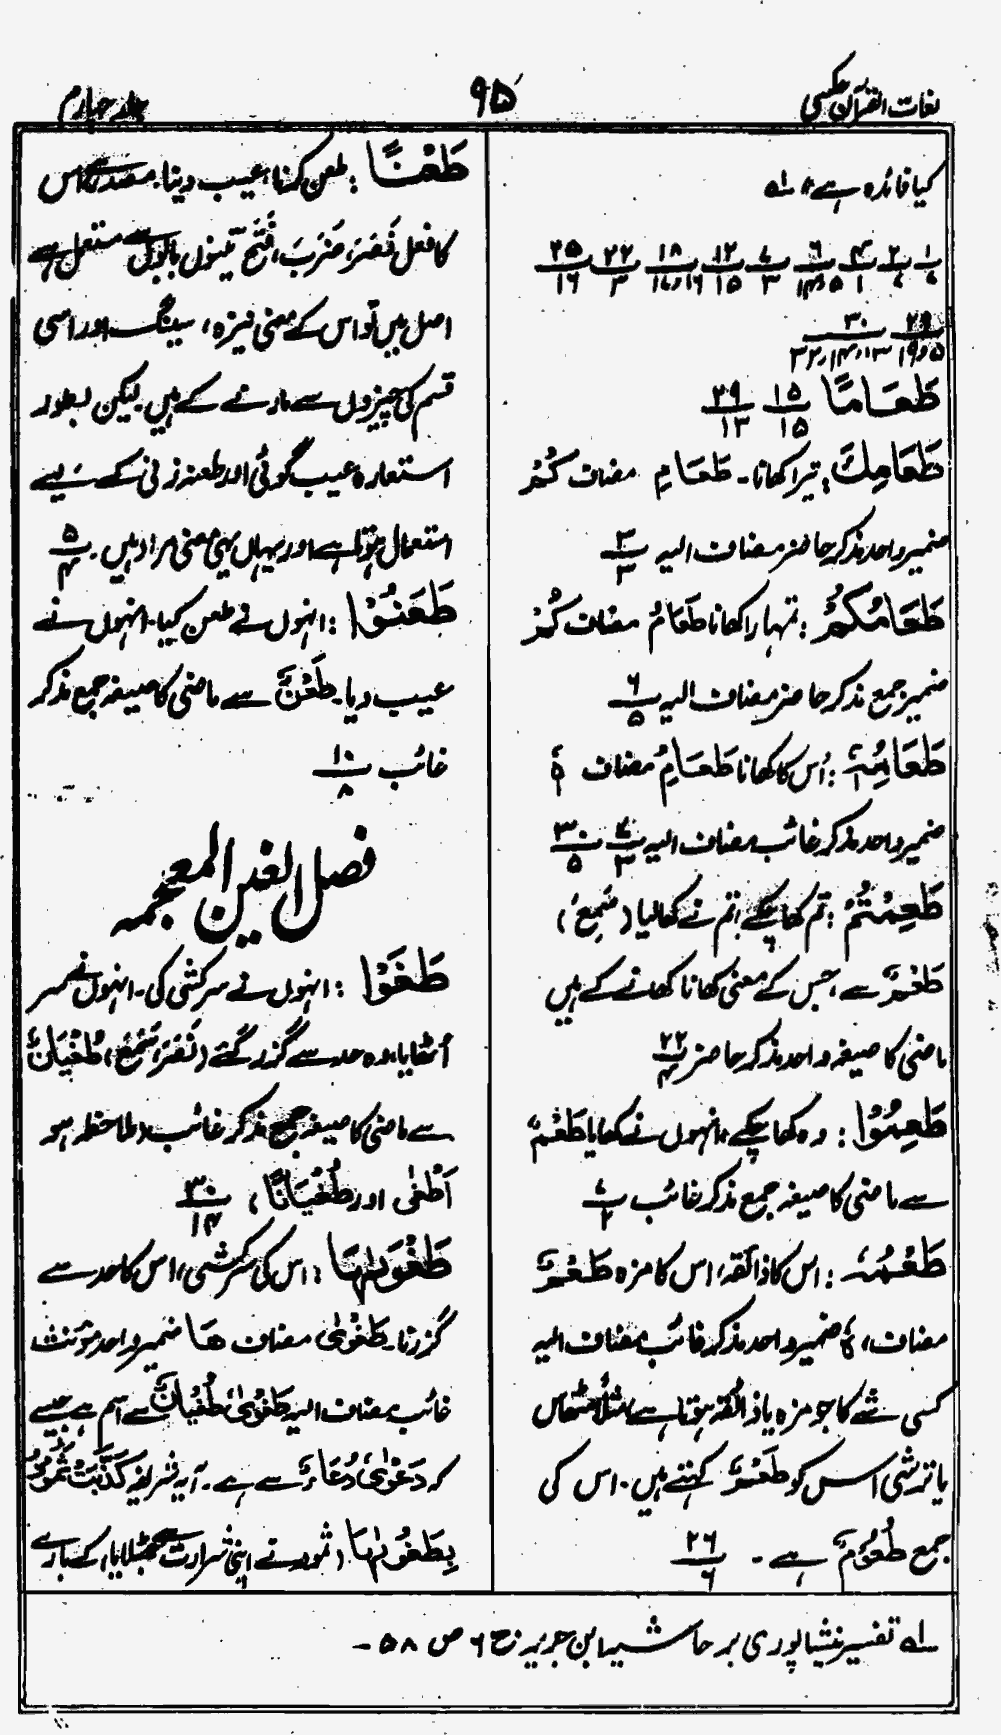 لغات القرآن عکسی
۹۵
جلد چہارم
کیا فائدہ ہے؟ ؎۱
۱/۷ ۲/۷ ۴/۱ ۶/۵ و ۱۴ ۷/۳ ۱۲/۱۵ ۱۸/۱۶ و ۱۷ ۲۲/۳ ۲۵/۱۶
۲۹/۵ و ۱۹ ۳۰/۱۳، ۱۴، ۳۲
طَعَامًا ۱۵/۱۵ ۲۹/۱۳
طَعَامِكَ: تیرا کھانا۔ طَعَامِ مضاف كَ
ضمیر واحد مذکر حاضر مضاف الیہ ۳/۳
طَعَامُكُمْ: تمہارا کھانا طَعَامُ مضاف كُمْ
ضمیر جمع مذکر حاضر مضاف الیہ ۶/۵
طَعَامِہٖ: اُس کا کھانا طَعَامِ مضاف ہٖ
ضمیر واحد مذکر غائب مضاف الیہ ۷/۳ ۳۰/۵
طَعِمْتُمْ: تم کھا چکے، تم نے کھا لیا (سَمِعَ)
طَعْمٌ سے، جس کے معنی کھانا کھانے کے ہیں
ماضی کا صیغہ واحد مذکر حاضر ۲۲/۴
طَعِمُوْا: وہ کھا چکے، انہوں نے کھایا طَعْمٌ
سے ماضی کا صیغہ جمع مذکر غائب ۷/۲
طَعْمُہٗ: اس کا ذائقہ، اس کا مزہ طَعْمُ
مضاف، ہٗ ضمیر واحد مذکر غائب مضاف الیہ
کسی شے کا جو مزہ یا ذائقہ ہوتا ہے مثلاً مٹھاس
یا ترشی اس کو طَعْمٌ کہتے ہیں۔ اس کی
جمع طُعُوْمٌ ہے۔ ۲۶/۶
طَعْنًا: طعن کرنا، عیب دینا۔ مصدر ہے اس
کا فعل نَصَرَ، ضَرَبَ، فَتَحَ تینوں بابوں سے مستعمل ہے
اصل میں تو اس کے معنی نیزہ، سینگ اور اسی
قسم کی چیزوں سے مارنے کے ہیں۔ لیکن بطور
استعارہ عیب گوئی اور طعنہ زنی کے لیے
استعمال ہوتا ہے اور یہاں یہی معنی مراد ہیں۔ ۵/۴
طَعَنُوْا: انہوں نے طعن کیا۔ انہوں نے
عیب دیا۔ طَعْنٌ سے ماضی کا صیغہ جمع مذکر
غائب ۱۰/۸
فصل الغین المعجمہ
طَغَوْا: انہوں نے سرکشی کی۔ انہوں نے سر
اٹھایا، وہ حد سے گزر گئے (نَصَرَ، سَمِعَ) طُغْيَانٌ
سے ماضی کا صیغہ جمع مذکر غائب (ملاحظہ ہو
اَطْغٰی اور طُغْيَانًا) ۳۰/۱۴
طَغْوٰىهَا: اس کی سرکشی، اس کا حد سے
گزرنا۔ طَغْوٰی مضاف هَا ضمیر واحد مؤنث
غائب مضاف الیہ طَغْوٰی، طُغْيَانٌ سے اسم ہے جیسے
کہ دَعْوٰی دُعَاءٌ سے ہے۔ آیہ شریفہ كَذَّبَتْ ثَمُوْدُ
بِطَغْوٰىهَا (ثمود نے اپنی شرارت سے جھٹلایا) کے بارے
؎۱ تفسیر نیشاپوری بر حاشیہ ابن جریر ج ۶ ص ۵۸۔